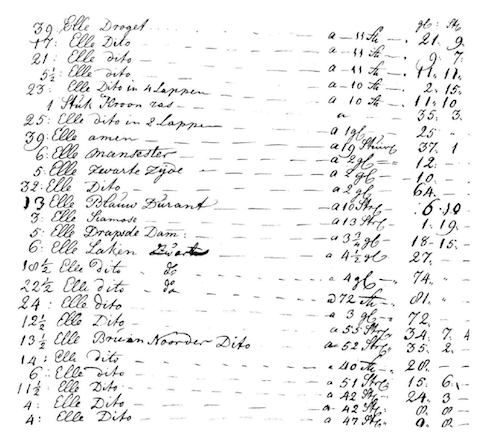 gl: St:
39 Elle Droget — a 11 St — 21. 9.
17: Elle Dito — a 11 St — 9. 7.
21: Elle dito — a 11 St — 11. 11.
5½ Elle dito — a 10 St — 2. 15.
23: Elle Dito in 4 Lappen — a 10 St — 11. 10
1 Stuk Kroon ras — a — 35. 3.
25: Elle dito in 2 Lappen — a 1 gl — 25 "
39: Elle amen — a 19 Stuiv 37. 1
6: Elle Mansester — a 2 gl — 12 -
5: Elle Zwarte Zyde — a 2 gl — 10. -
32: Elle Dito — a 2 gl — 64. -
13 Elle Blauw Durant — a 10 St — 6. 10
3: Elle Siamose — a 13 St — 1. 19.
5: Elle Drapsde Dam: — a 3¾ gl 18-15.
6: Elle Laken — a 4½ gl — 27. -
18½ Elle dito do — a 4 gl — 74. -
22½ Elle dito do — a 72 St — 81. -
24: Elle dito — a 3 gl — 72 —
12½ Elle Dito — a 55 St 34. 7. 4
13½ Elle Bruin Noorder Dito a 52 St 35. 2.
14: Elle dito — a 40 St — 28. —
6: Elle dito — a 51 St 15. 6.
11½ Elle Dito — a 42 St — 24. 3
4: Elle Dito — a 42 St — 8. 8.
4: Elle Dito — a 47 St 9. 8.